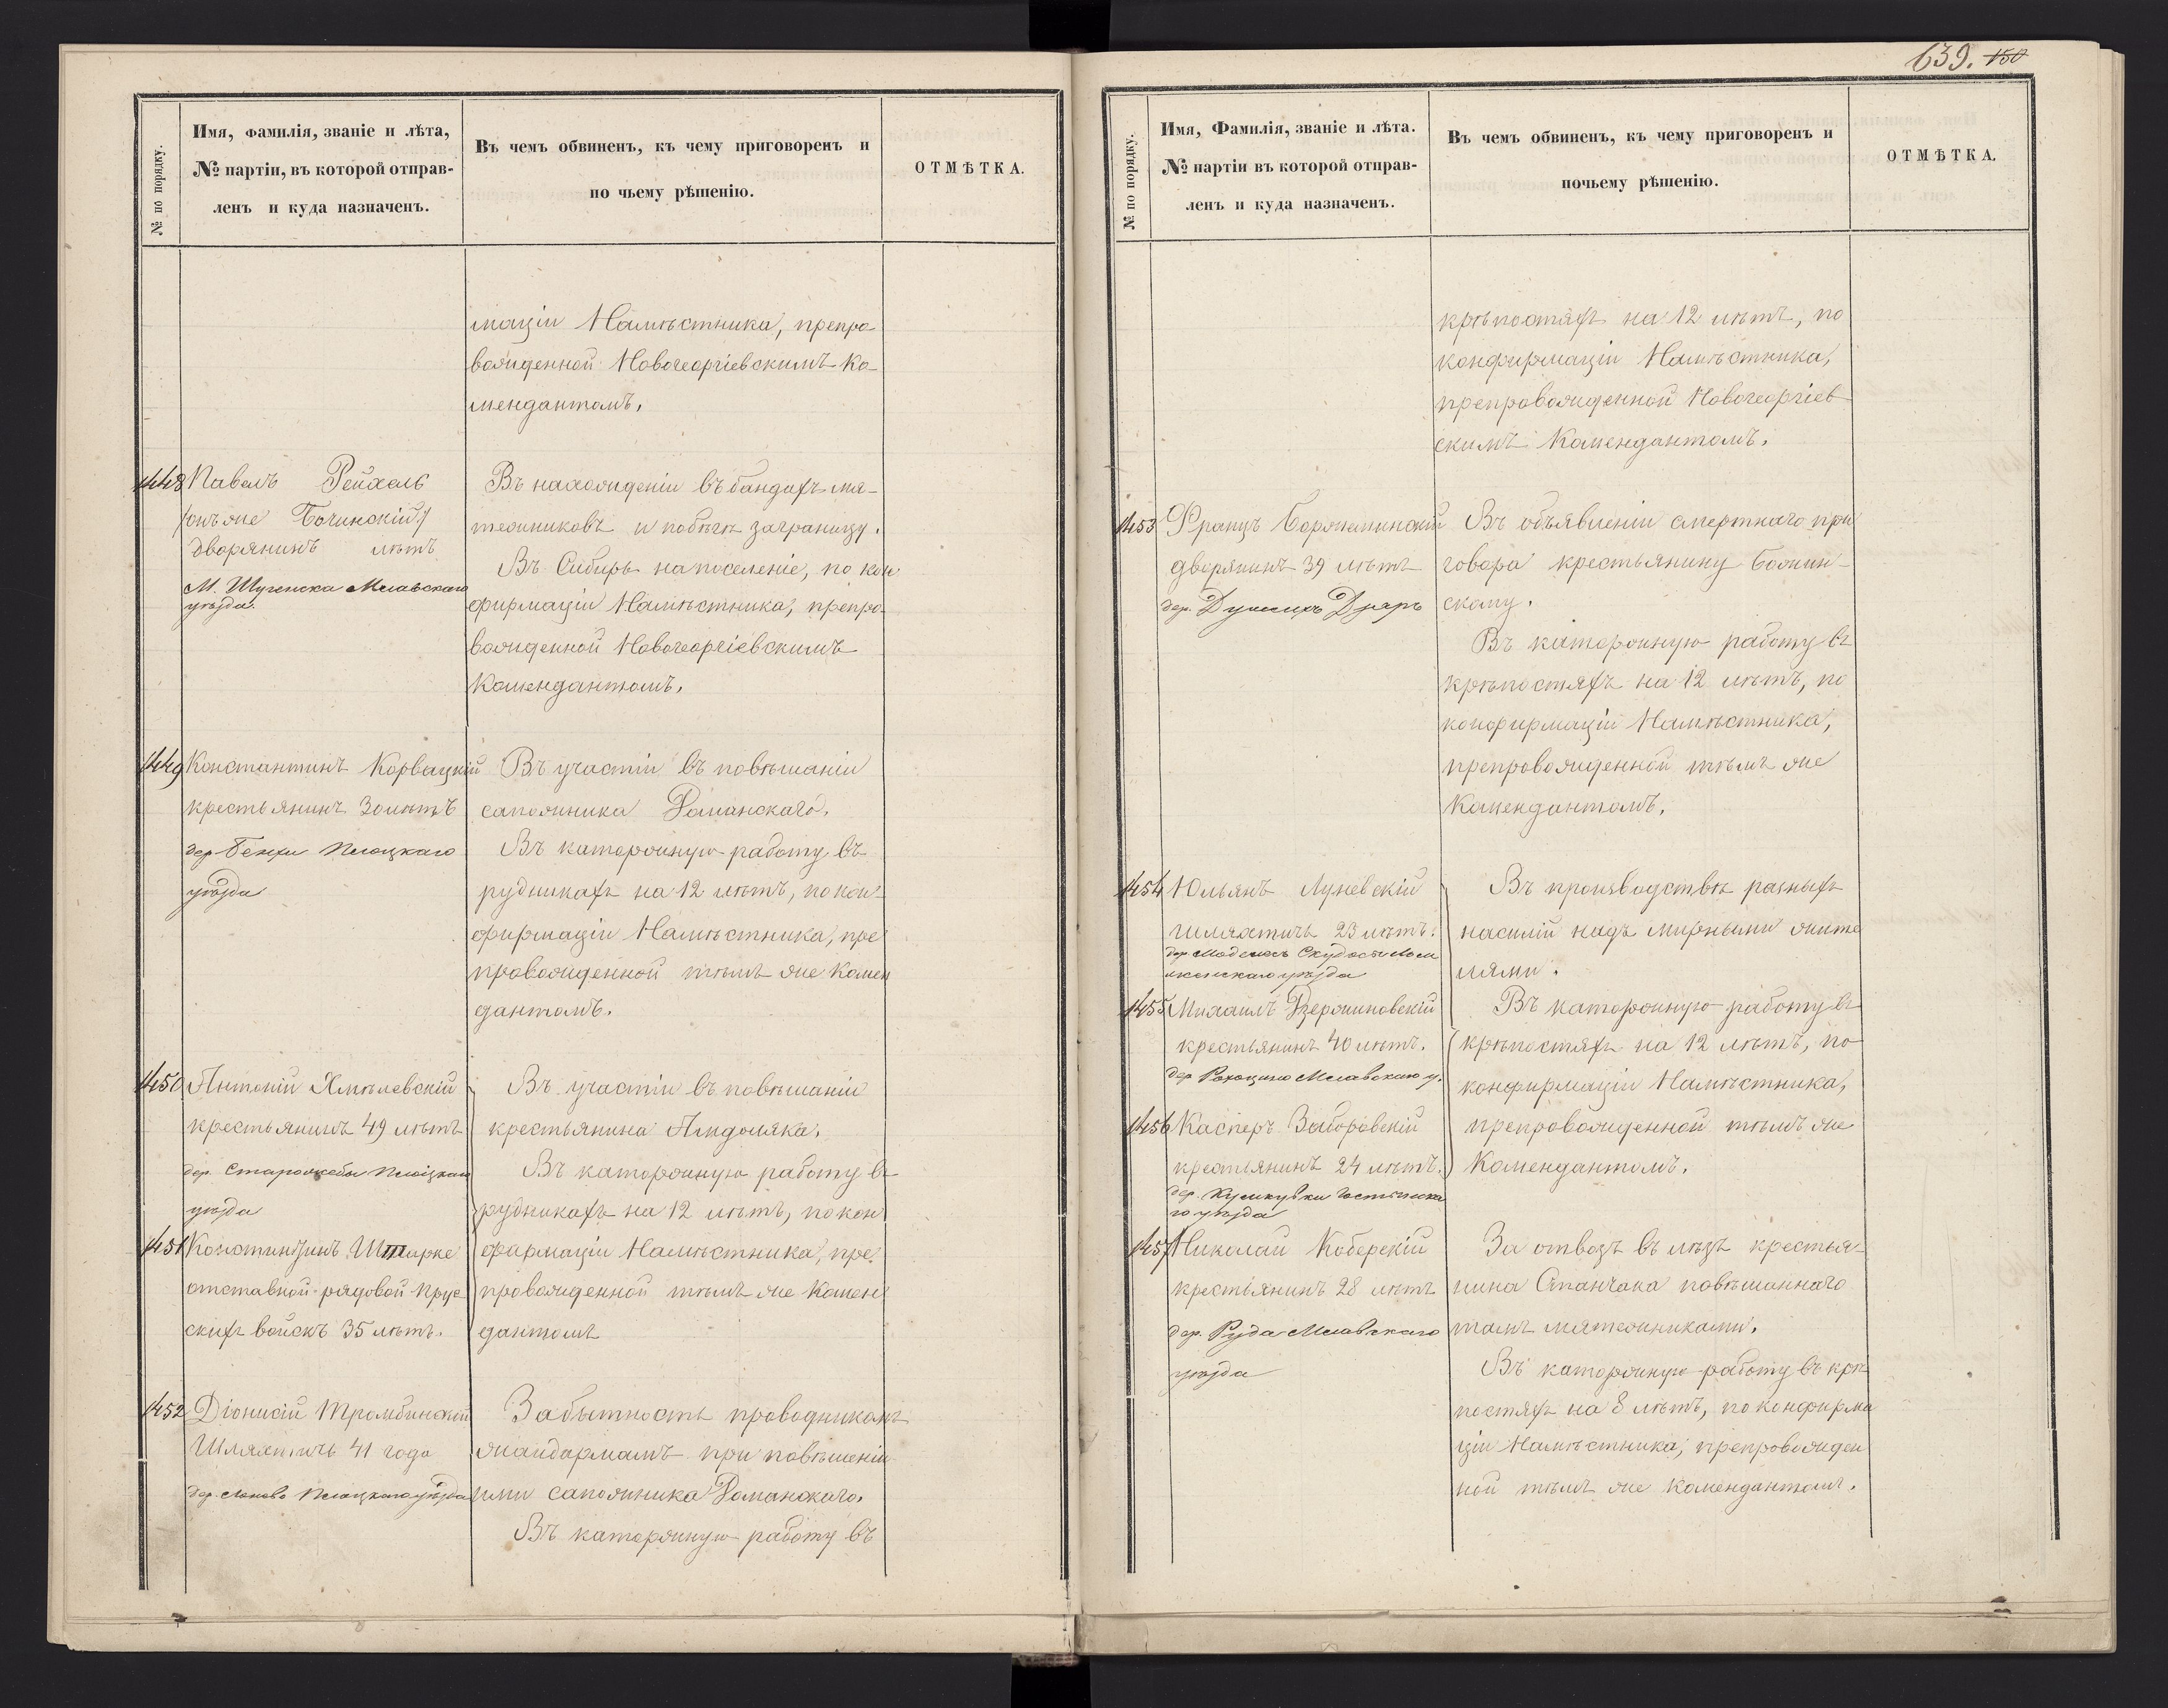 № по порядку.
Имя, фамилія, званіе и лѣта,
№ партіи, въ которой отправ-
ленъ и куда назначенъ.
Въ чемъ обвиненъ, къ чему приговоренъ и
по чьему рѣшенію.
ОТМѢТКА.
маціи Намѣстника, препро
вожденной Новогеоргіевскимъ Ко-
мендантомъ.
1448
Павелъ Рейхель
/онъ же Бочинскій/
дворянинъ лѣтъ
М. Шренска Млавскаго
уѣзда.
Въ нахожденіи въ бандахъ мя-
тежниковъ и побѣгѣ заграницу.
Въ Сибирь на поселеніе, по кон
фирмаціи Намѣстника, препро-
вожденной Новогеоргіевскимъ
Комендантомъ.
1449
Константинъ Корвацкій
крестьянинъ 30 лѣтъ
дер Плоцкаго
уѣзда
Въ участіи въ повѣшаніи
сапожника Романскаго.
Въ каторжную работу въ
рудникахъ на 12 лѣтъ, по кон-
фирмаціи Намѣстника, пре
провожденной тѣмъ же Комен
дантомъ.
1450
Антоній Хмѣлевскій
крестьянинъ 49 лѣтъ
дер. Старожебы Плоцкаго
уѣзда
1451
Константинъ Штарке
отставной рядовой Прус
скихъ войскъ 35 лѣтъ.
Въ участіи въ повѣшаніи
крестьянина
Въ каторжную работу въ
рудникахъ на 12 лѣтъ, по кон
фирмаціи Намѣстника, пре.
провожденной тѣмъ же Комен
дантомъ
1452
Діонисій Тромбинскій
Шляхтичъ 41 года
дер. Плоцкаго уѣзда
За бытность проводникомъ
жандармамъ при повѣшеніи
ими сапожника Романскаго.
Въ каторжную работу въ
639. 150
№ по порядку.
Имя, Фамилія, званіе и лѣта.
№ партіи въ которой отправ-
ленъ и куда назначенъ.
Въ чемъ обвиненъ, къ чему приговоренъ и
почьему рѣшенію.
ОТМѢТКА.
крѣпостяхъ на 12 лѣтъ, по
конфирмаціи Намѣстника,
препровожденной Новогеоргіев
скимъ Комендантомъ.
1453
Францъ
дворянинъ 39 лѣтъ
дер.
Въ объявленіи смертнаго при
говора крестьянину Божин-
скому.
Въ каторжную работу въ
крѣпостяхъ на 12 лѣтъ, по
конфирмаціи Намѣстника,
препровожденной тѣмъ же
Комендантомъ.
1454
Юльянъ Луневскій
шляхтичъ 23 лѣтъ.
дер.
уѣзда
1455
Михаилъ Дзержановскій
крестьянинъ 40 лѣтъ.
дер Млавскаго у.
1456
Касперъ Заборовскій
крестьянинъ 24 лѣтъ.
дер.
го уѣзда
Въ производствѣ разныхъ
насилій надъ мирными жите
лями.
Въ каторжную работу въ
крѣпостяхъ на 12 лѣтъ, по
конфирмаціи Намѣстника,
препровожденной тѣмъ же
Комендантомъ.
1457
Николай Коберскій
крестьянинъ 28 лѣтъ
дер. Руда Млавскаго
уѣзда
За отвозъ въ лѣсъ крестья-
нина Станчака повѣшаннаго
тамъ мятежниками.
Въ каторжную работу въ крѣ
постяхъ на 8 лѣтъ, по конфирма
ціи Намѣстника, препровожден
ной тѣмъ же Комендантомъ.